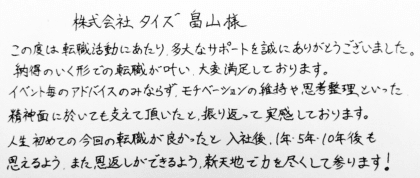 株式会社 タイズ 畠山様
この度は転職活動にあたり、多大なサポートを誠にありがとうございました。
納得のいく形での転職が叶い、大変満足しております。
イベント毎のアドバイスのみならず、モチベーションの維持や思考整理といった
精神面に於いても支えて頂いたと、振り返って実感しております。
人生初めての今回の転職が良かったと 入社後、1年・5年・10年後も
思えるよう、また恩返しができるよう、新天地で力を尽くして参ります!